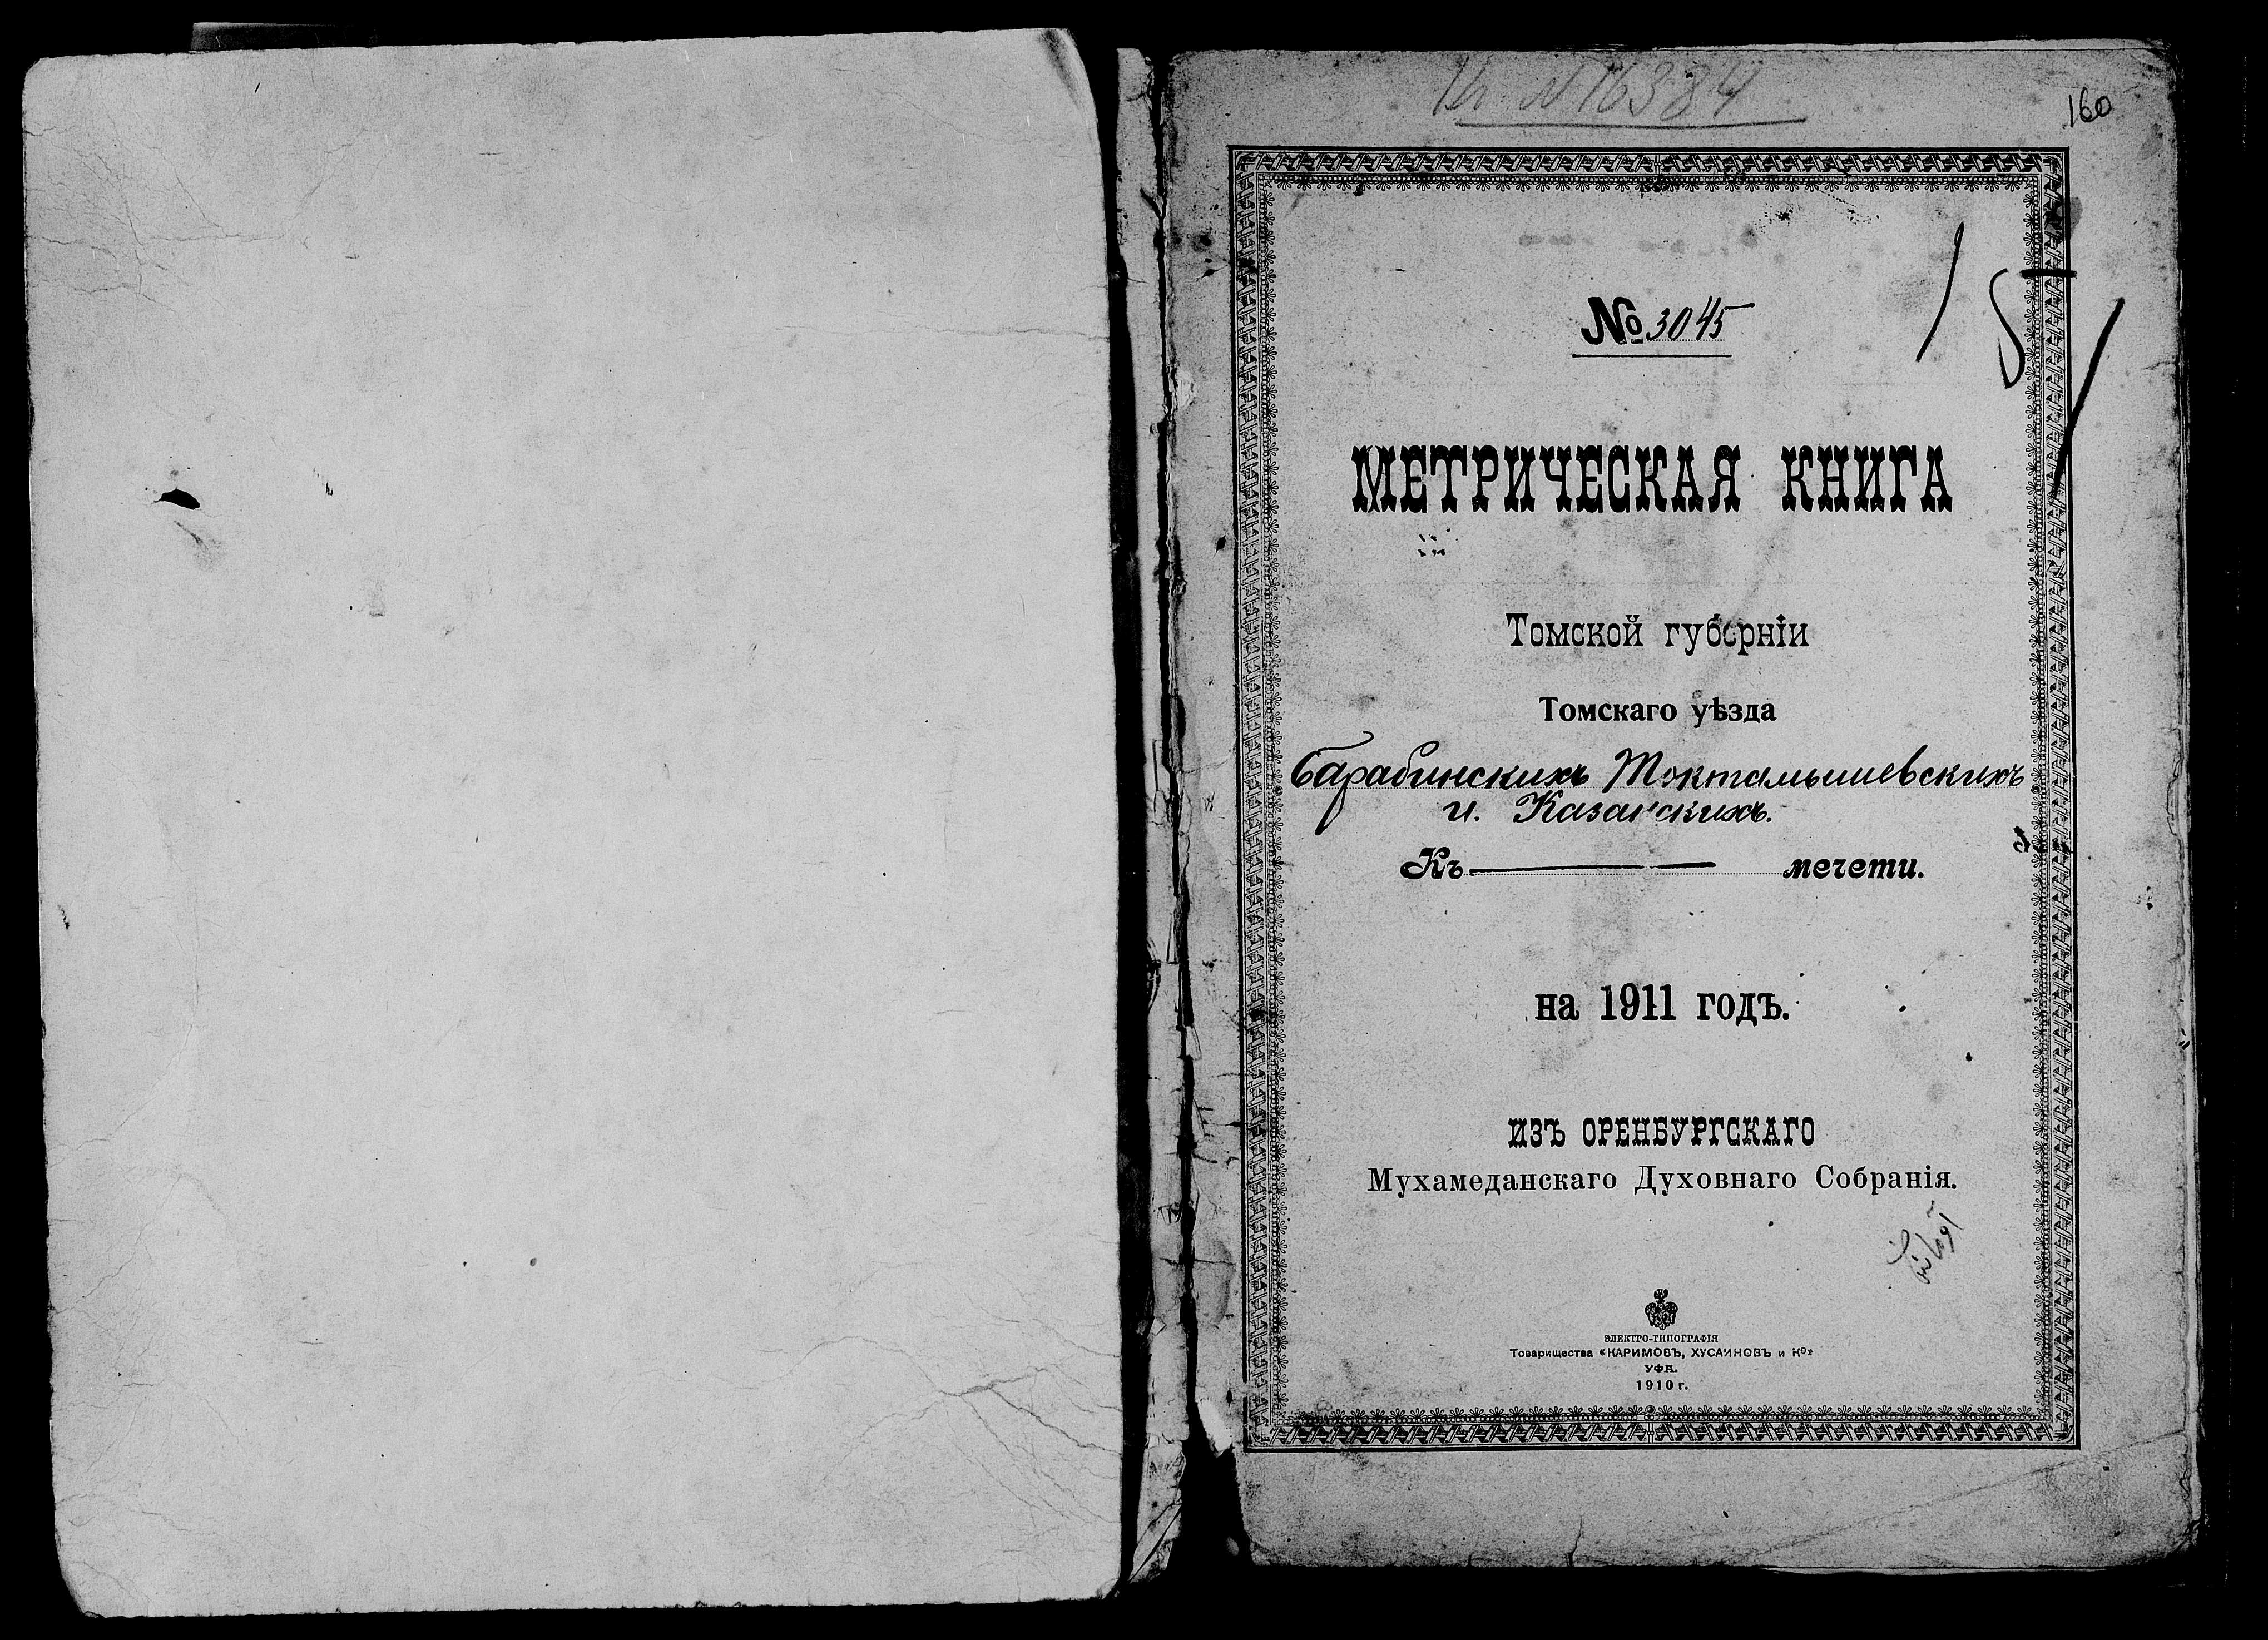 №16384
160
15
№ 3045
МЕТРИЧЕСКАЯ КНИГА
Томской губернiи
Томскаго уѣзда
Барабинскихъ Токтамышевскихъ
и. Казанскихъ.
Къ мечети.
на 1911 годъ.
ИЗЪ ОРЕНБУРГСКАГО
Мухамеданскаго Духовнаго Собранiя.
ЭЛЕКТРО-ТИПОГРАФIЯ
Товарищества «КАРИМОВЪ, ХУСАИНОВЪ и Ко»
УФА.
1910 г.